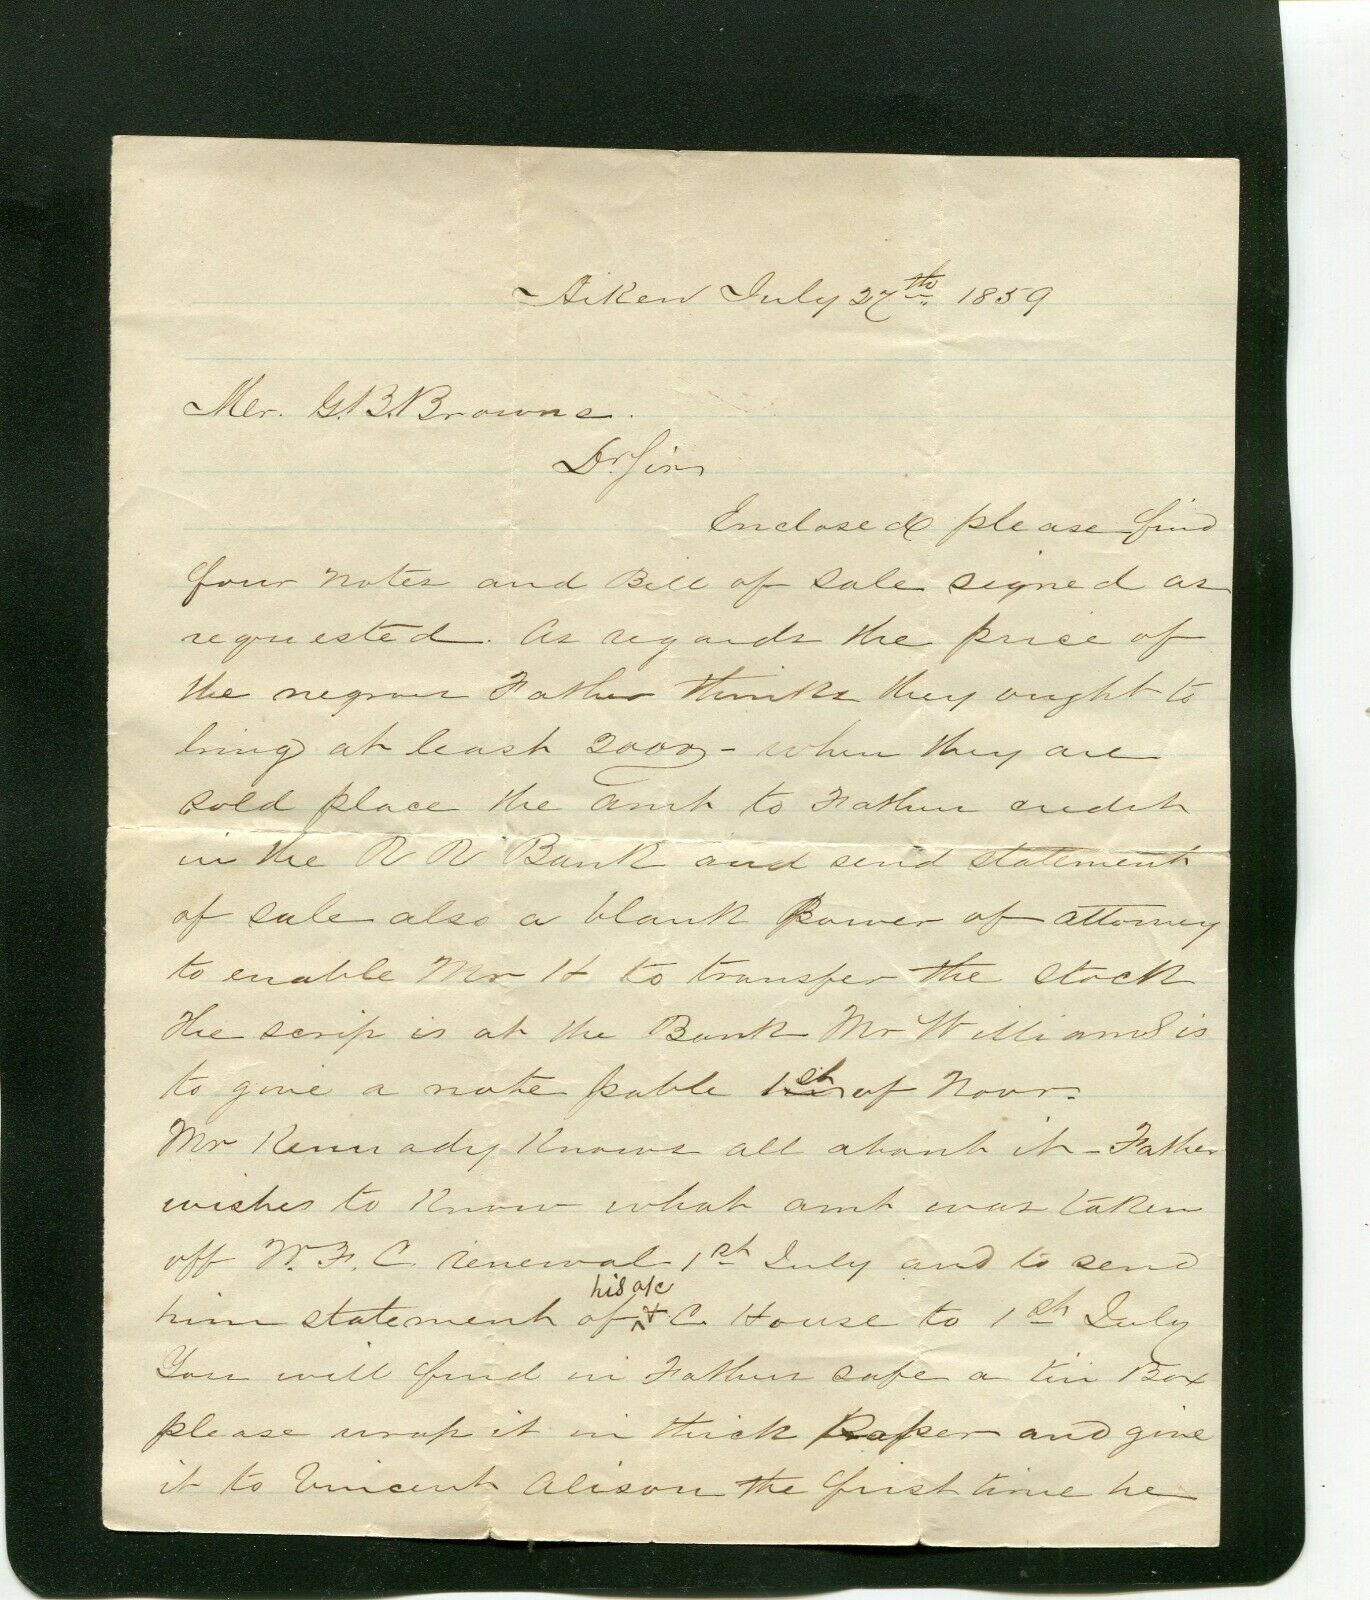 Aiken July 27th 1859
Mr. G. B. Browne.
Dr. Sir
Enclosed please find
four notes and Bill of sale signed as
requested. As regards the price of
the negroes Father thinks they ought to
bring at least 2000 - when they are
sold place the amt to Father credit
in the R R Bank and send statement
of sale also a blank Power of attorney
to enable Mr H to transfer the stock
The scrip is at the Bank Mr Williams is
to give a note pable 1st of Novr.
Mr Kennady Knows all about it - Father
wishes to Know what amt was taken
off W. F. C. renewal 1st July and to send
his a/c
him statement of ^ C. House to 1st July
You will find in Father safe a tin Box
please wrap it in thick Paper and give
it to Vincent Alison the first time he